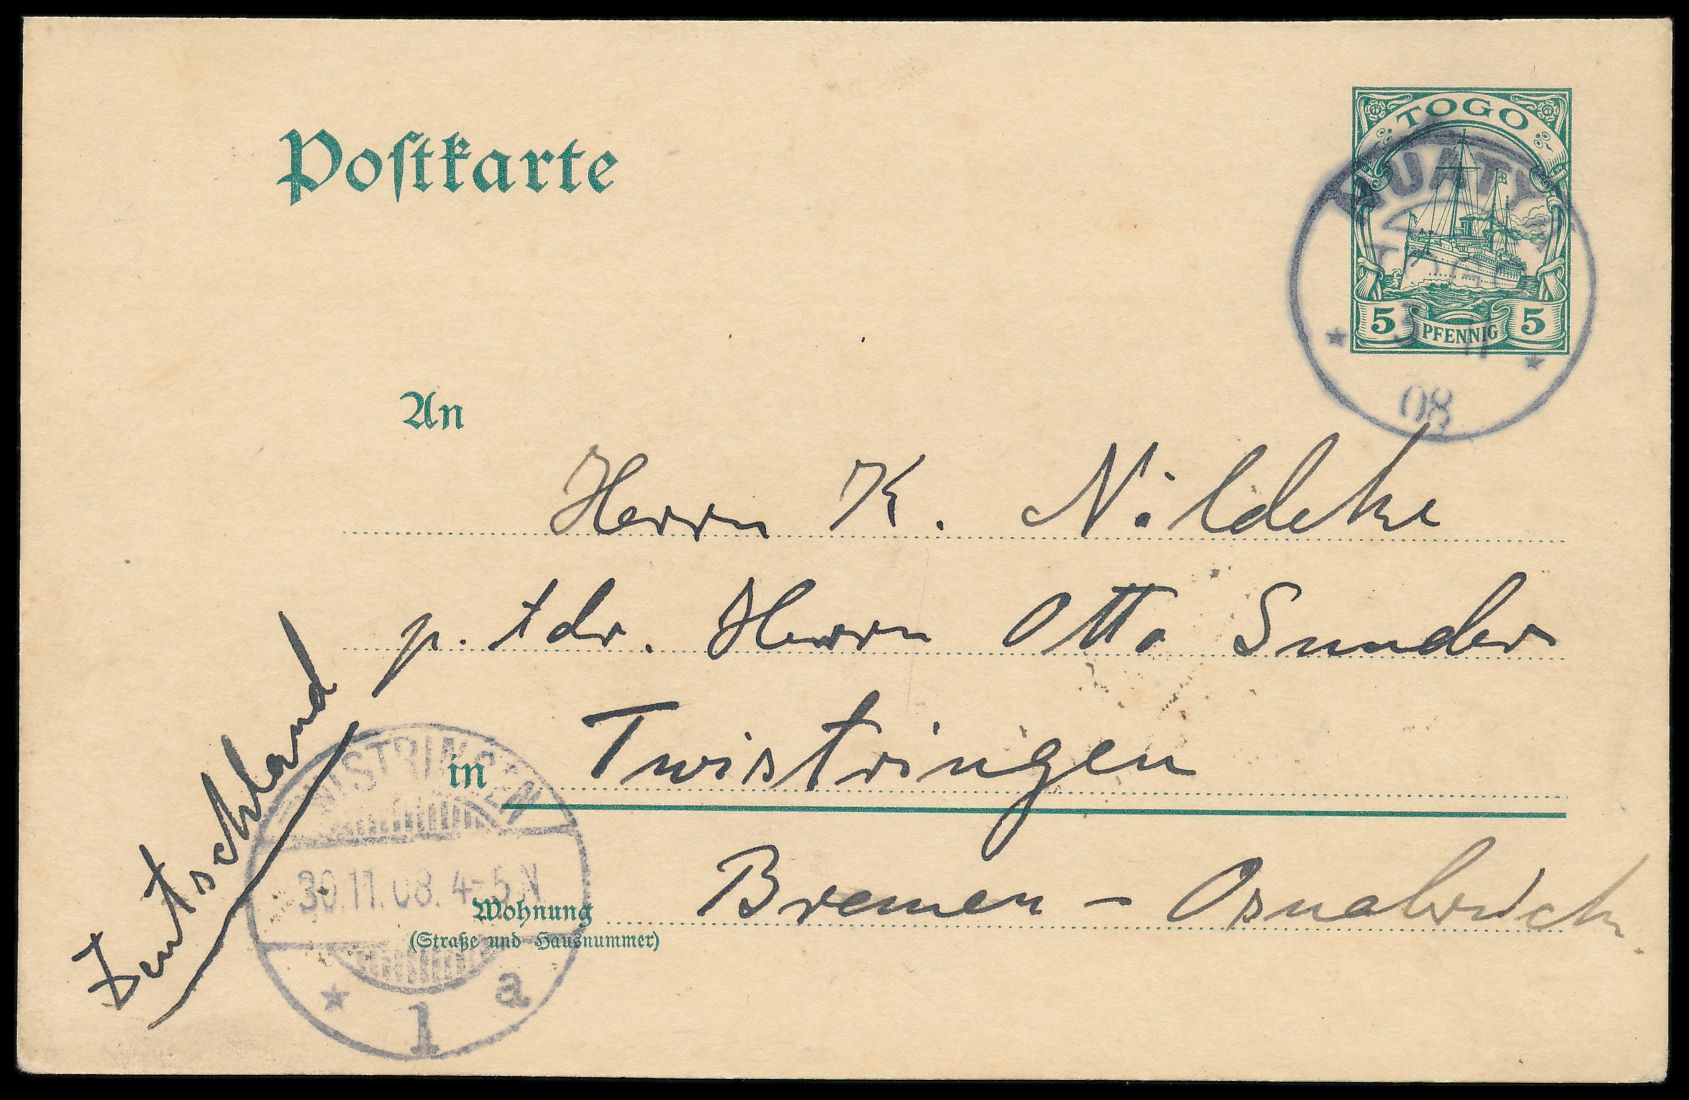 Postkarte
TOGO
NUATYÄ
TOGO
5 PFENNIG 5
11
08
An
Herrn K. Nildeke
p. Adr. Herrn Otto Sunder
in Twistringen
Bremen – Osnabrück.
Wohnung
(Straße und Hausnummer)
Deutschland
TWISTRINGEN
30.11.08. 4-5 N
* 1 a